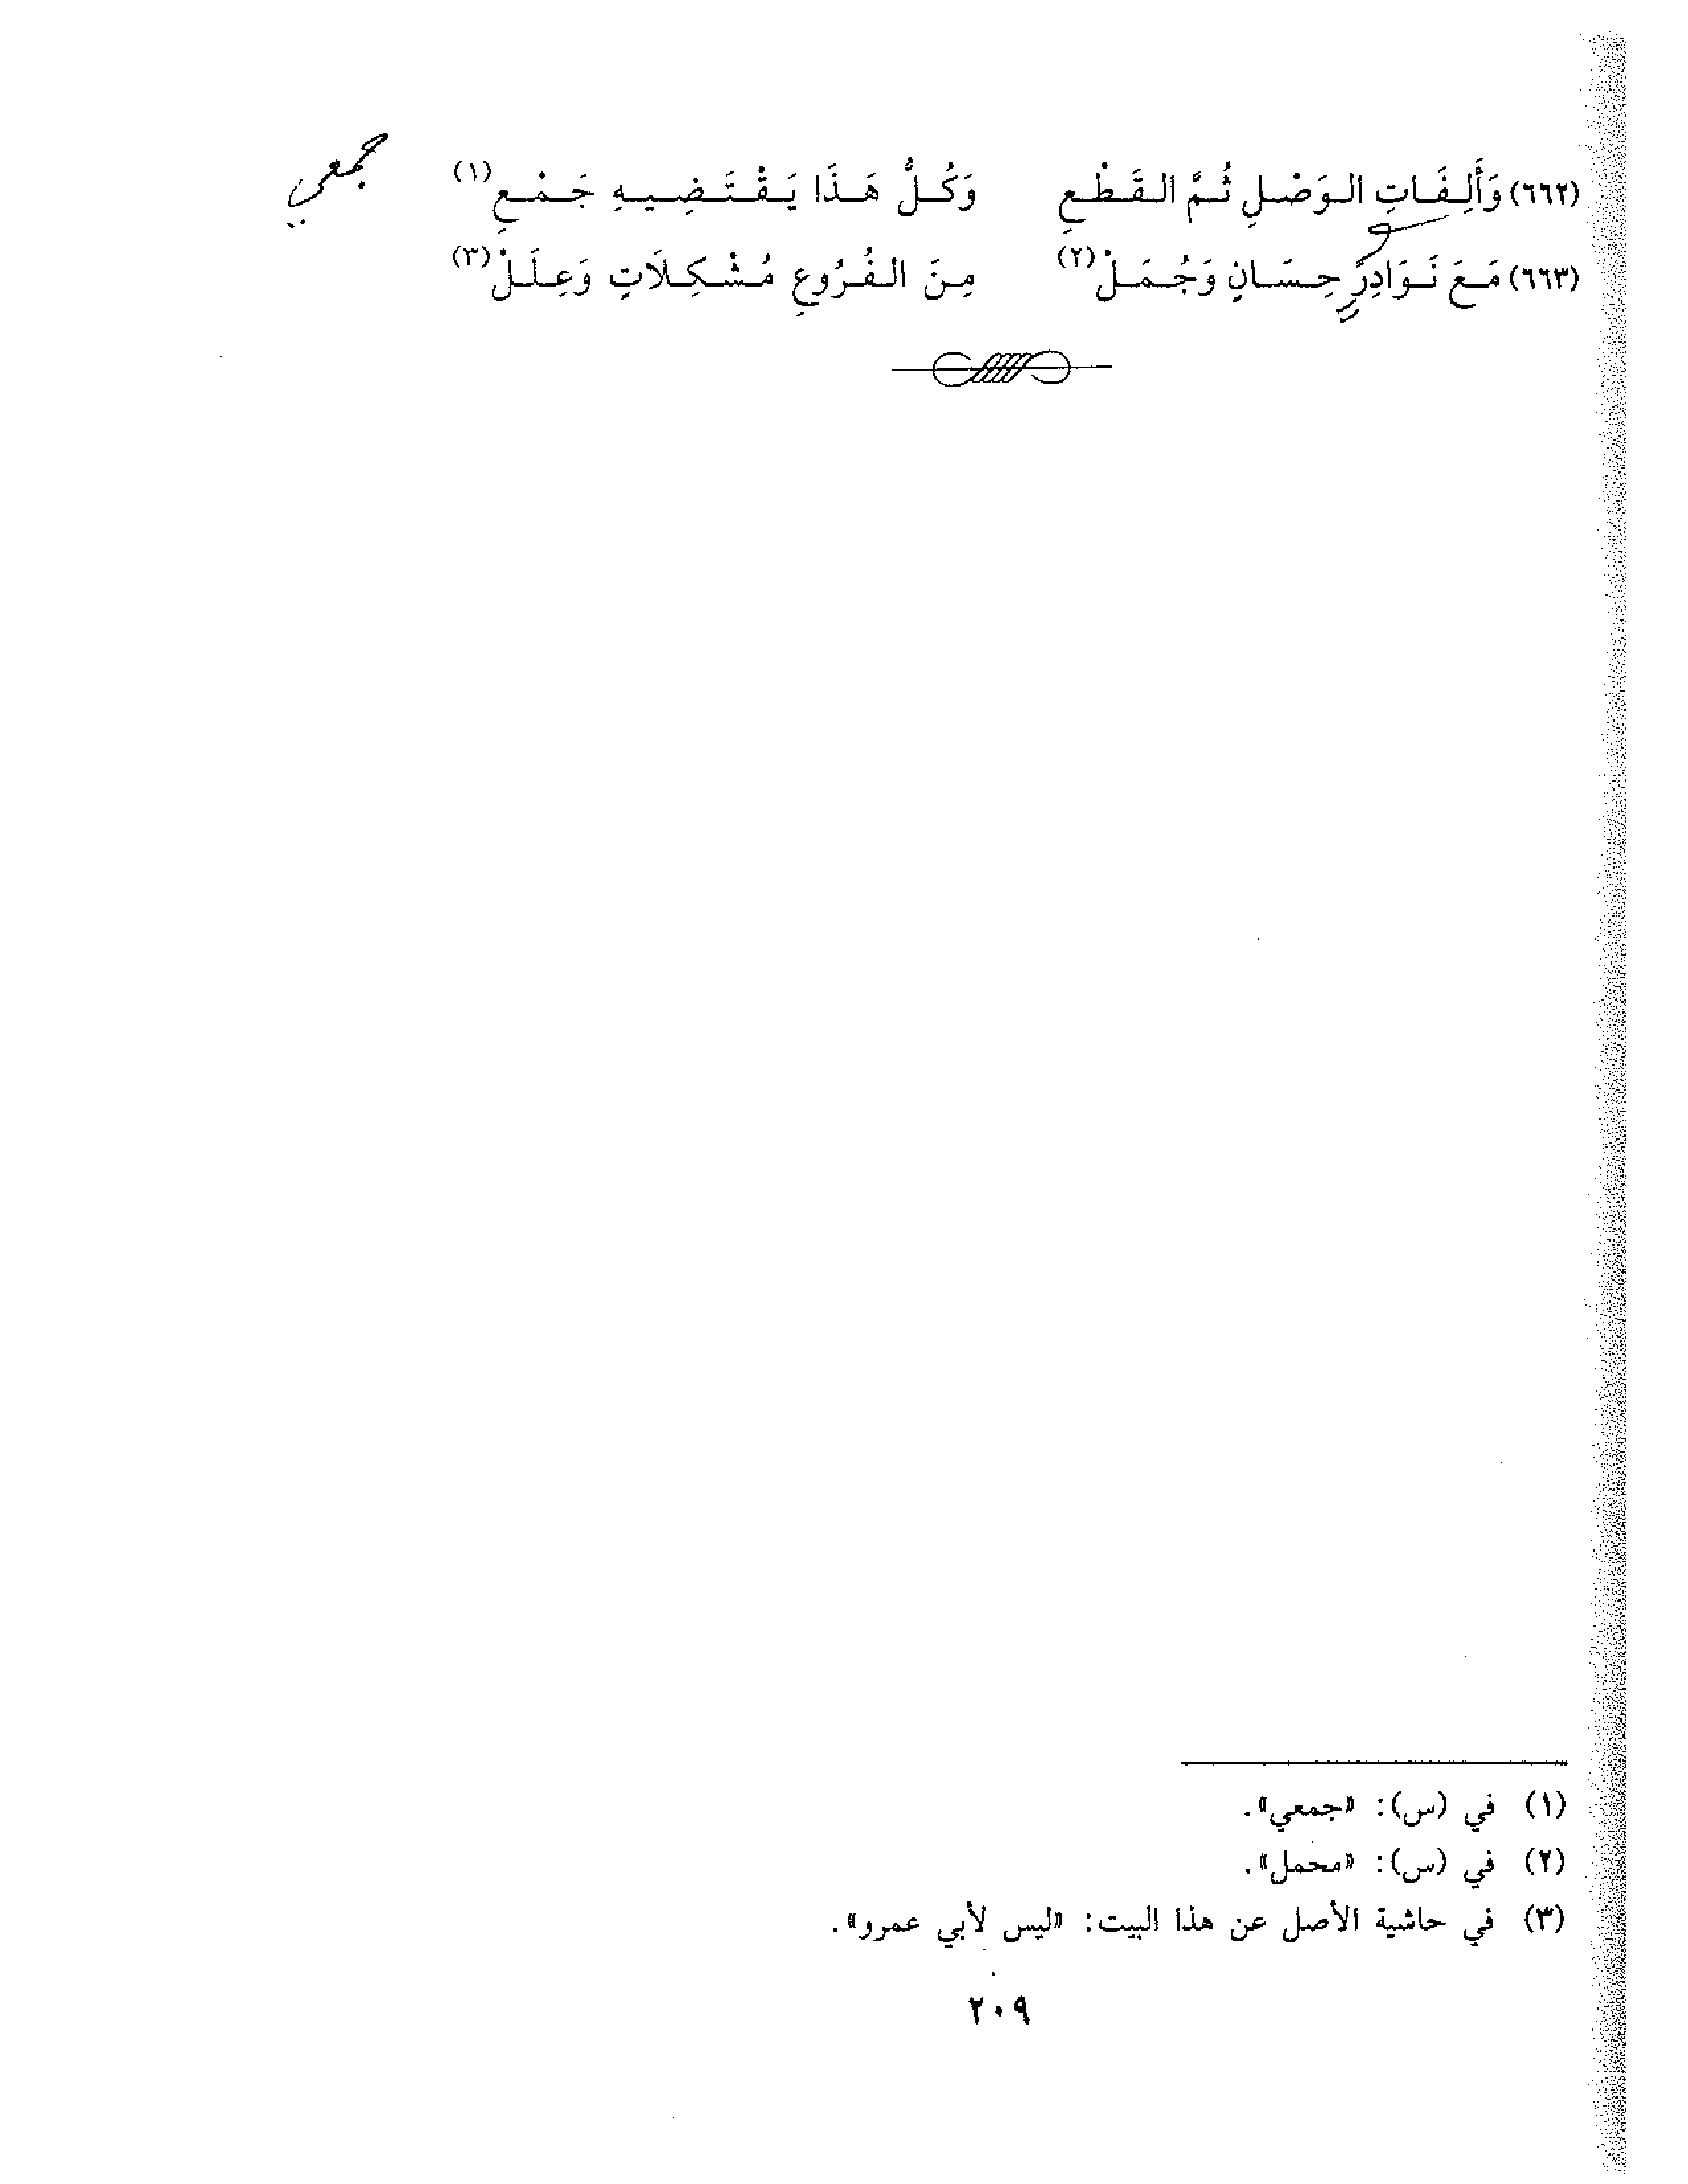 (٦٦٢) وَأَلِفَاتِ الوَصْلِ ثُمَّ القَطْعِ وَكُلُّ هَذَا يَقْتَضِيهِ جَمْعِ(١)
جمعي
(٦٦٣) مَعَ نَوَادِرٍ حِسَانٍ وَجُمَلْ(٢) مِنَ الفُرُوعِ مُشْكِلَاتٍ وَعِلَلْ(٣)
(١) في (س): «جمعي».
(٢) في (س): «محمل».
(٣) في حاشية الأصل عن هذا البيت: «ليس لأبي عمرو».
٢٠٩